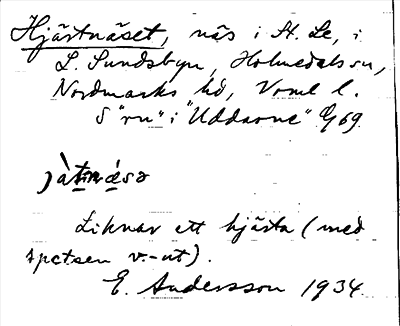 Hjästnäset, näs i St. Le, i
L. Sundsbyn, Holmedals sn,
Nordmarks hd, Vrml l.
S "ru" i "Uddarne" 69.
Liknar ett hjästa (med
spetsen v.-ut).
E. Andersson 1934.